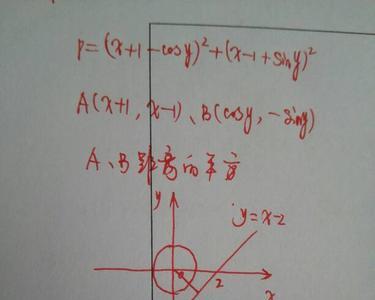 p=(x+1-cosy)²+(x-1+siny)²
A(x+1, x-1)、B(cosy, -siny)
A、B距离的平方
y
y=x-2
2
x